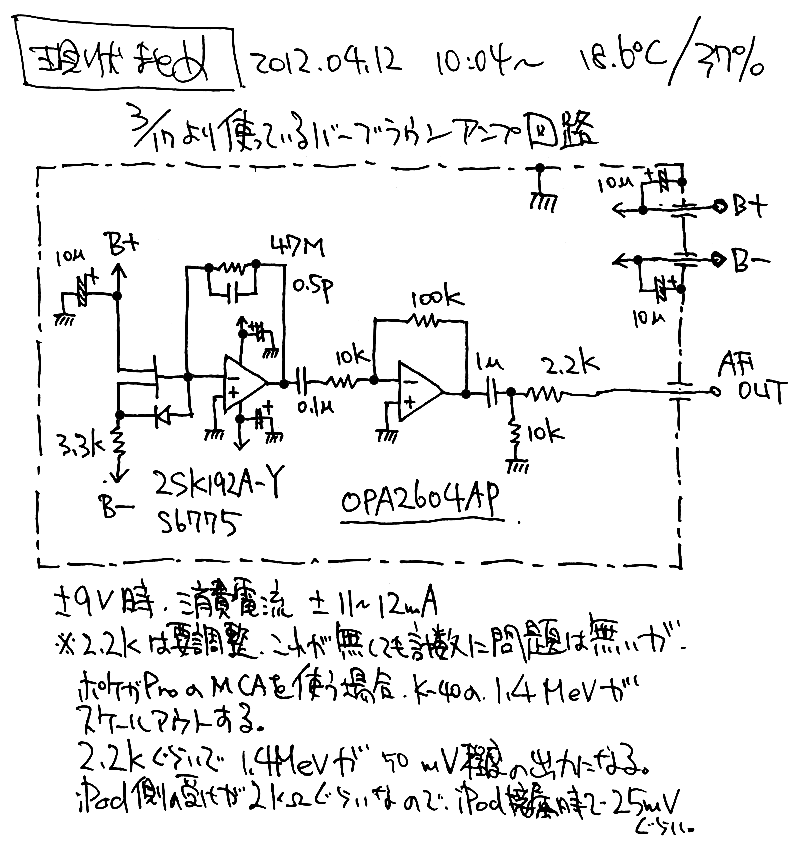 現状まとめ 2012.04.12 10:04〜 18.6℃/37%
3/17より使っているバーブラウンアンプ回路
10μ
B+
B-
10μ
10μ
B+
47M
0.5p
100k
10k
0.1μ
1μ
2.2k
AF OUT
10k
3.3k
B-
2SK192A-Y
S6775
OPA2604AP
±9V時.消費電流 ±11~12mA
※2.2kは要調整.これが無くても計数に問題は無いが.
ポケガProのMCAを使う場合.K-40の1.4MeVが
スケールアウトする。
2.2kぐらいで1.4MeVが50mV程度の出力になる。
iPod側の受けが2kΩぐらいなので.iPod接続時で25mV
ぐらい.